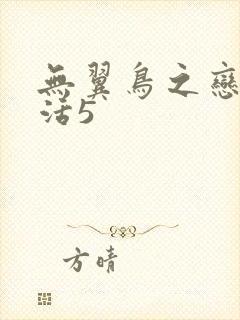 無翼鳥之戀
活5
方晴